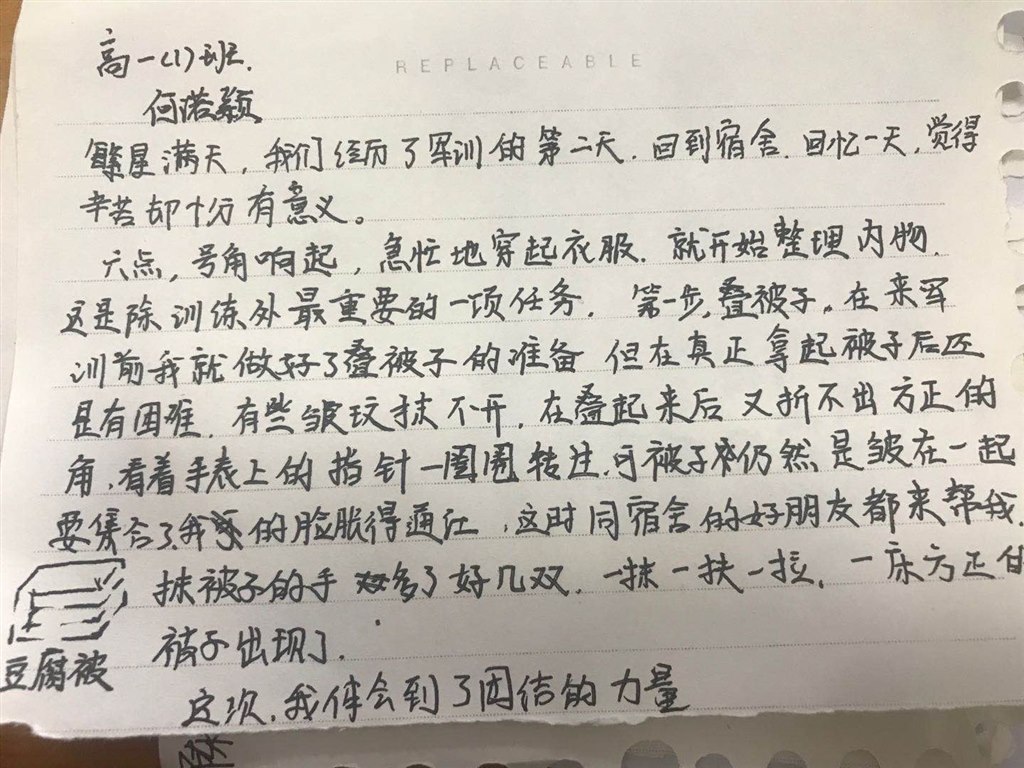 REPLACEABLE
高一(1)班.
何诺颖
繁星满天，我们经历了军训的第二天.回到宿舍.回忆一天,觉得
辛苦却十分有意义。
六点，号角响起，急忙地穿起衣服.就开始整理内物.
这是除训练外最重要的一项任务. 第一步,叠被子。在来军
训前我就做好了叠被子的准备 但在真正拿起被子后还
是有困难.有些皱玟抹不开.在叠起来后又折不出方正的
角.看着手表上的指针一圈圈转过.可被子仍然是皱在一起
要集合了,我的脸胀得通红.这时同宿舍的好朋友都来帮我.
抹被子的手多了好几双.一抹一扶一拉.一床方正的
被子出现了.
豆腐被
这次,我体会到了团结的力量